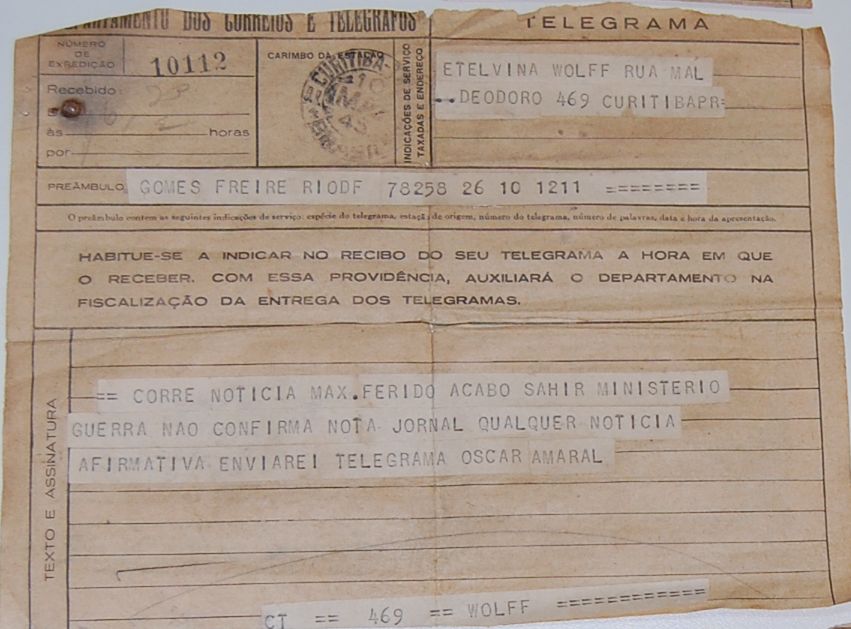 DEPARTAMENTO DOS CORREIOS E TELEGRAFOS
TELEGRAMA
NÚMERO
DE
EXPEDIÇÃO
10112
Recebido
às horas
por
CARIMBO DA ESTAÇÃO
CURITIBA
10
45
INDICAÇÕES DE SERVIÇO
TAXADAS E ENDEREÇO
ETELVINA WOLFF RUA MAL
DEODORO 469 CURITIBAPR=
PREÂMBULO GOMES FREIRE RIODF 78258 26 10 1211 ========
O preâmbulo contem as seguintes indicações de serviço: espécie do telegrama, estação de origem, número do telegrama, número de palavras, data e hora da apresentação.
HABITUE-SE A INDICAR NO RECIBO DO SEU TELEGRAMA A HORA EM QUE
O RECEBER. COM ESSA PROVIDÊNCIA, AUXILIARÁ O DEPARTAMENTO NA
FISCALIZAÇÃO DA ENTREGA DOS TELEGRAMAS.
TEXTO E ASSINATURA
== CORRE NOTICIA MAX. FERIDO ACABO SAHIR MINISTERIO
GUERRA NAO CONFIRMA NOTA JORNAL QUALQUER NOTICIA
AFIRMATIVA ENVIAREI TELEGRAMA OSCAR AMARAL
CT == 469 == WOLFF ============